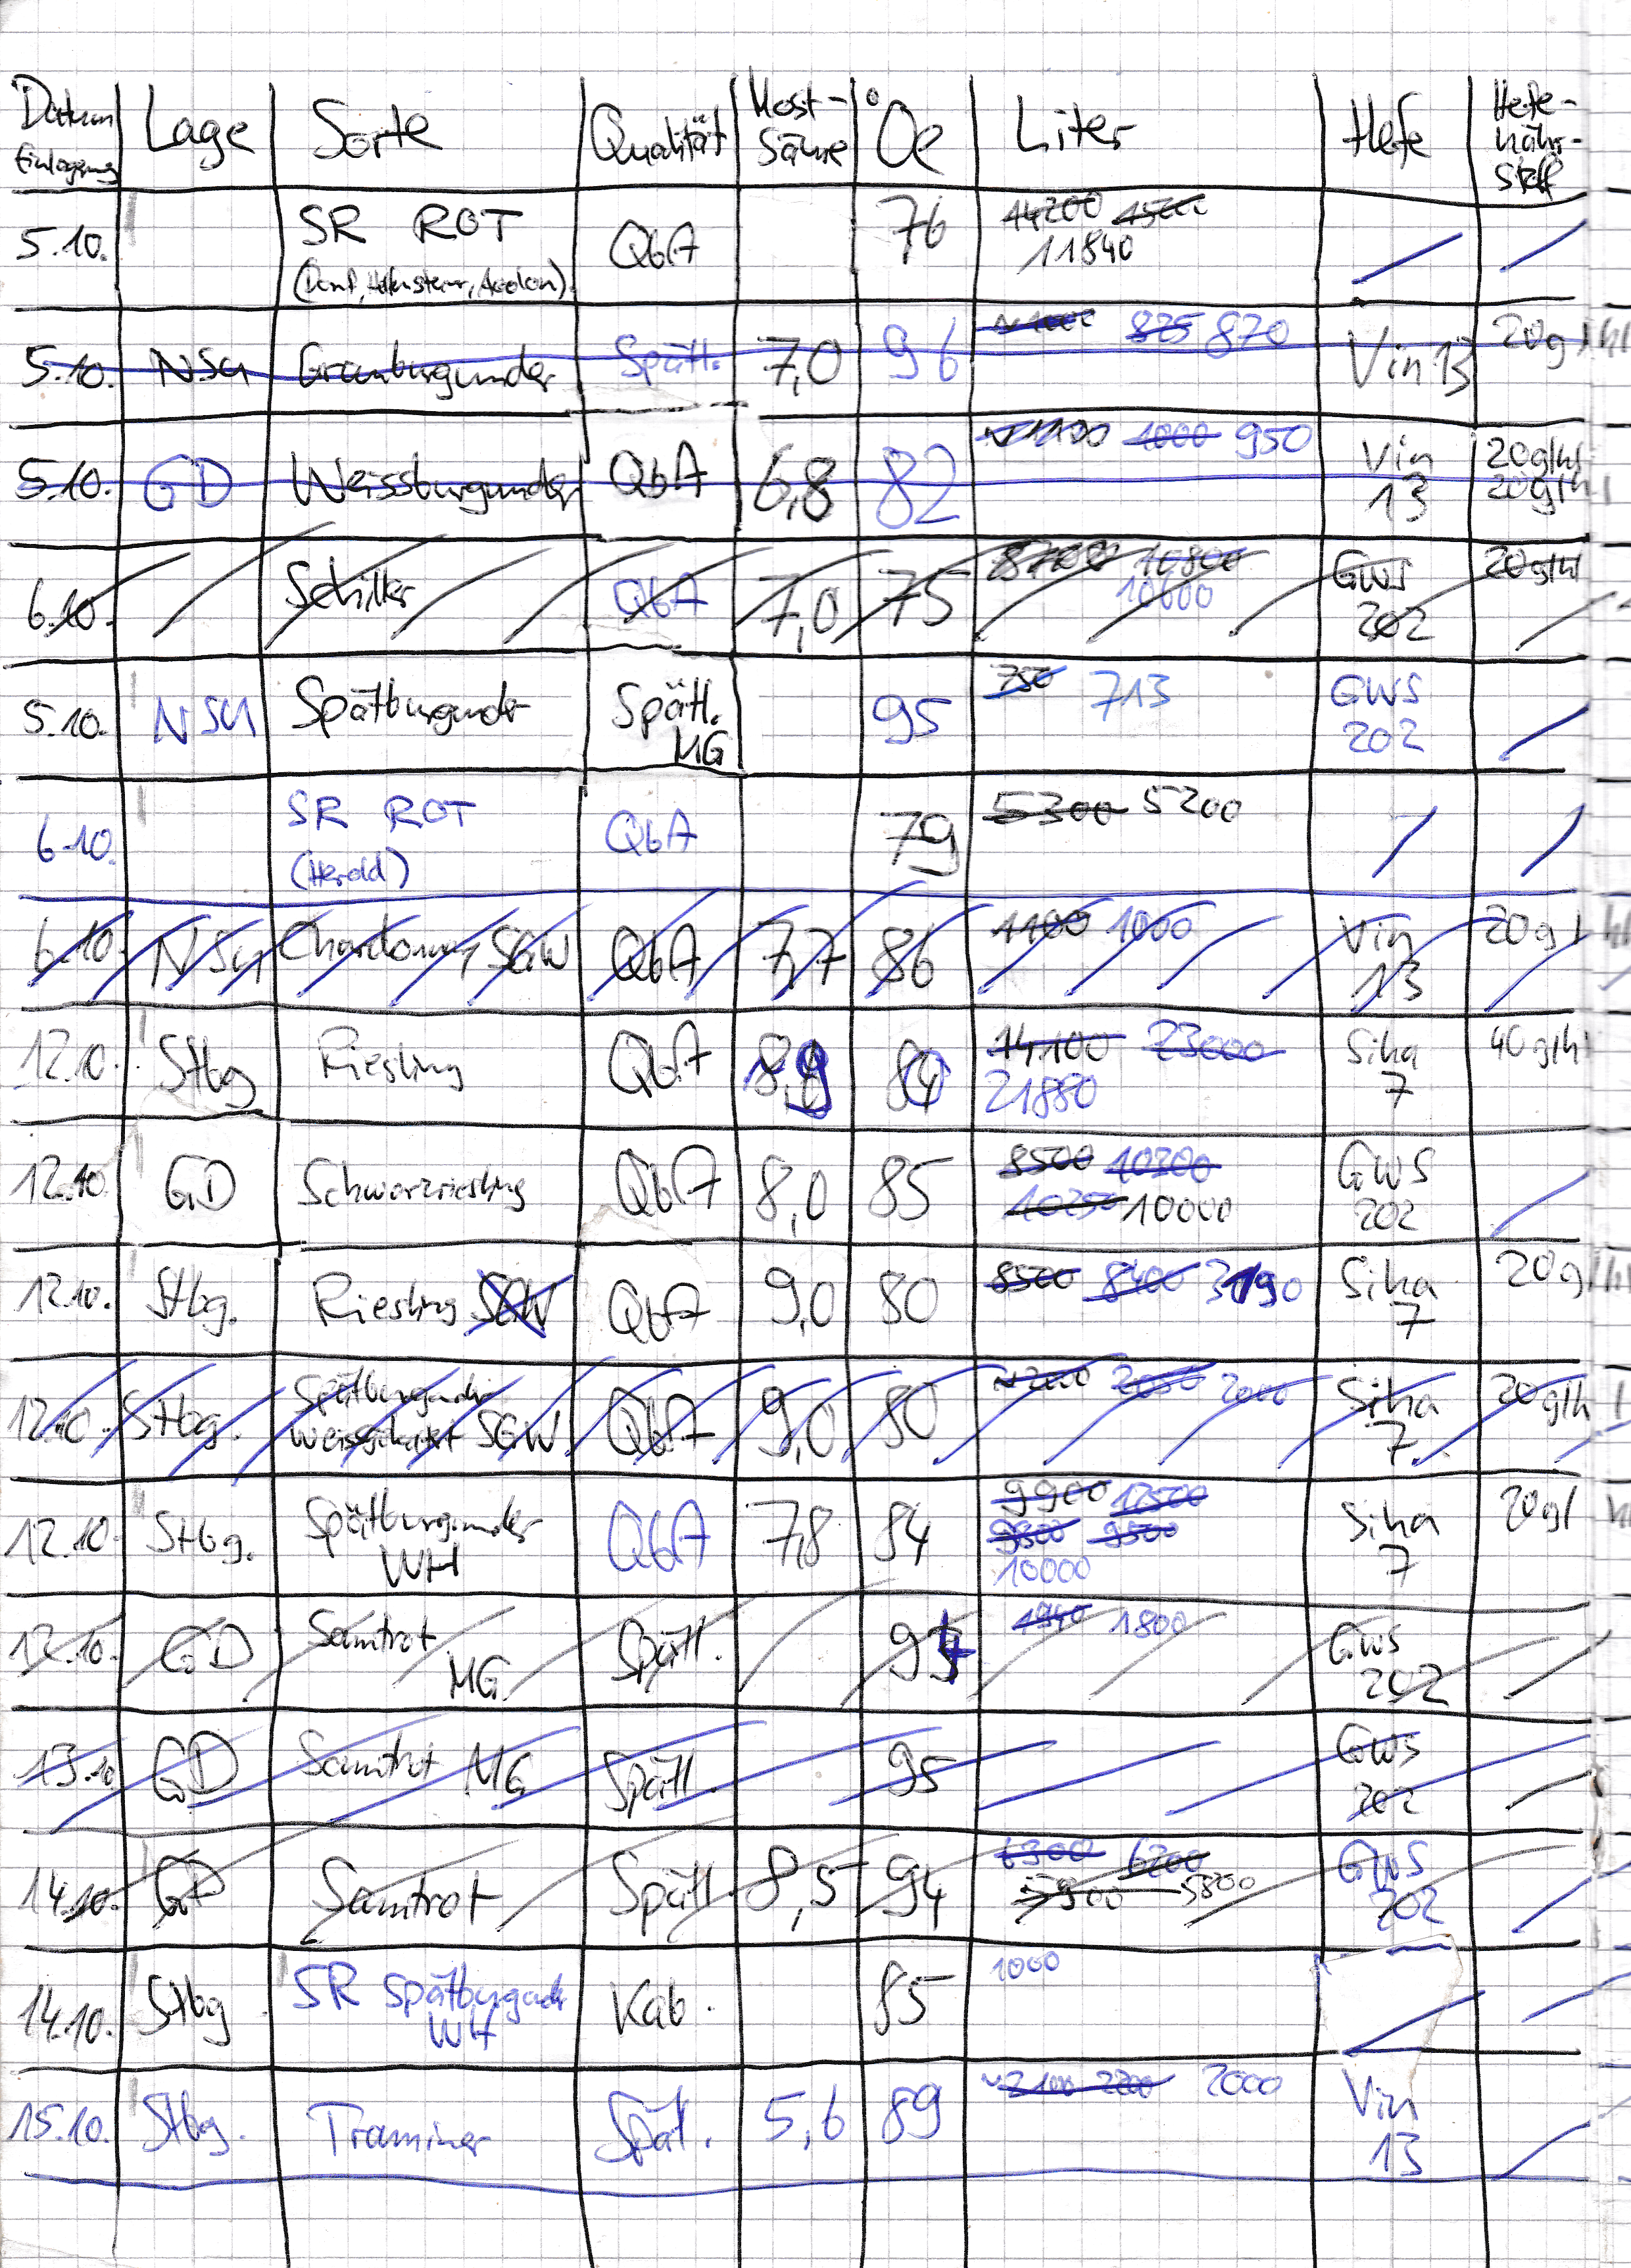 Datum Einlagerung Lage Sorte Qualität Most-Säure °Oe Liter Hefe Hefe-nähr-stoff
5.10. SR ROT QbA 76 14200 15000
11840
5.10. NSG Grauburgunder Spätl. 7,0 96 ~1000 825 870 Vin 13 20g/hl
5.10. GD Weissburgunder QbA 6,8 82 ~1100 1000 950 Vin 13 20g/hl
20g/hl
6.10. Schiller QbA 7,0 75 10800 GWS 202 20g/hl
10600
5.10. NSG Spätburgunder Spätl. MG 95 750 713 GWS 202
6.10. SR ROT QbA 79 5300 5200
(Herold)
6.10. NSG Chardonnay SGW QbA 7,7 86 1100 1000 Vin 13 20g
12.10. Stbg Riesling QbA 8,9 80 14100 23000 Siha 7 40g/hl
21880
12.10. GD Schwarzriesling QbA 8,0 85 8500 10300 GWS 202
10250 10000
12.10. Stbg. Riesling SGW QbA 9,0 80 8500 8400 3190 Siha 7 20g/hl
12.10. Stbg. Spätburgunder QbA 9,0 80 ~2200 2050 2000 Siha 7 20g/hl
Weissherbst SGW
12.10. Stbg. Spätburgunder QbA 7,8 84 9900 12500 Siha 7 20g/
WH 9800 9500
10000
13.10. GD Samtrot Spätl. 94 1940 1800 GWS 202
MG
13.10. GD Samtrot MG Spätl. 95 GWS 202
14.10. GD Samtrot Spätl. 8,5 94 6300 6200 GWS 202
5900 5800
14.10. Stbg SR Spätburgunder Kab. 85 1000
WH
15.10. Stbg. Traminer Spätl. 5,6 89 ~2100 2200 2000 Vin 13